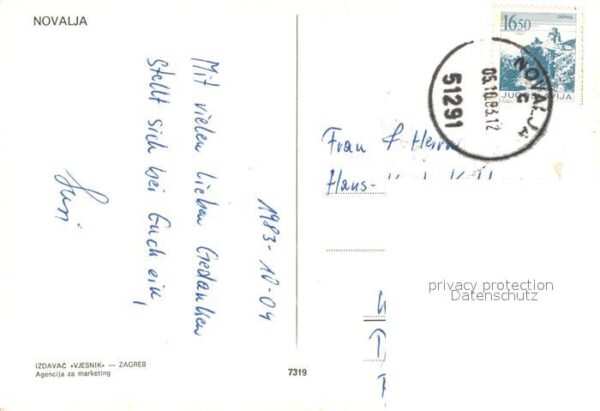 NOVALJA
1983-10-04
Mit vielen lieben Gedanken
stellt sich bei Euch ein,
Susi
IZDAVAČ «VJESNIK» — ZAGREB
Agencija za marketing
7319
16.50
JUGOSLAVIJA
NOVALJA
C
05.10.83.12
51291
Frau & Herrn
Hans-
privacy protection
Datenschutz